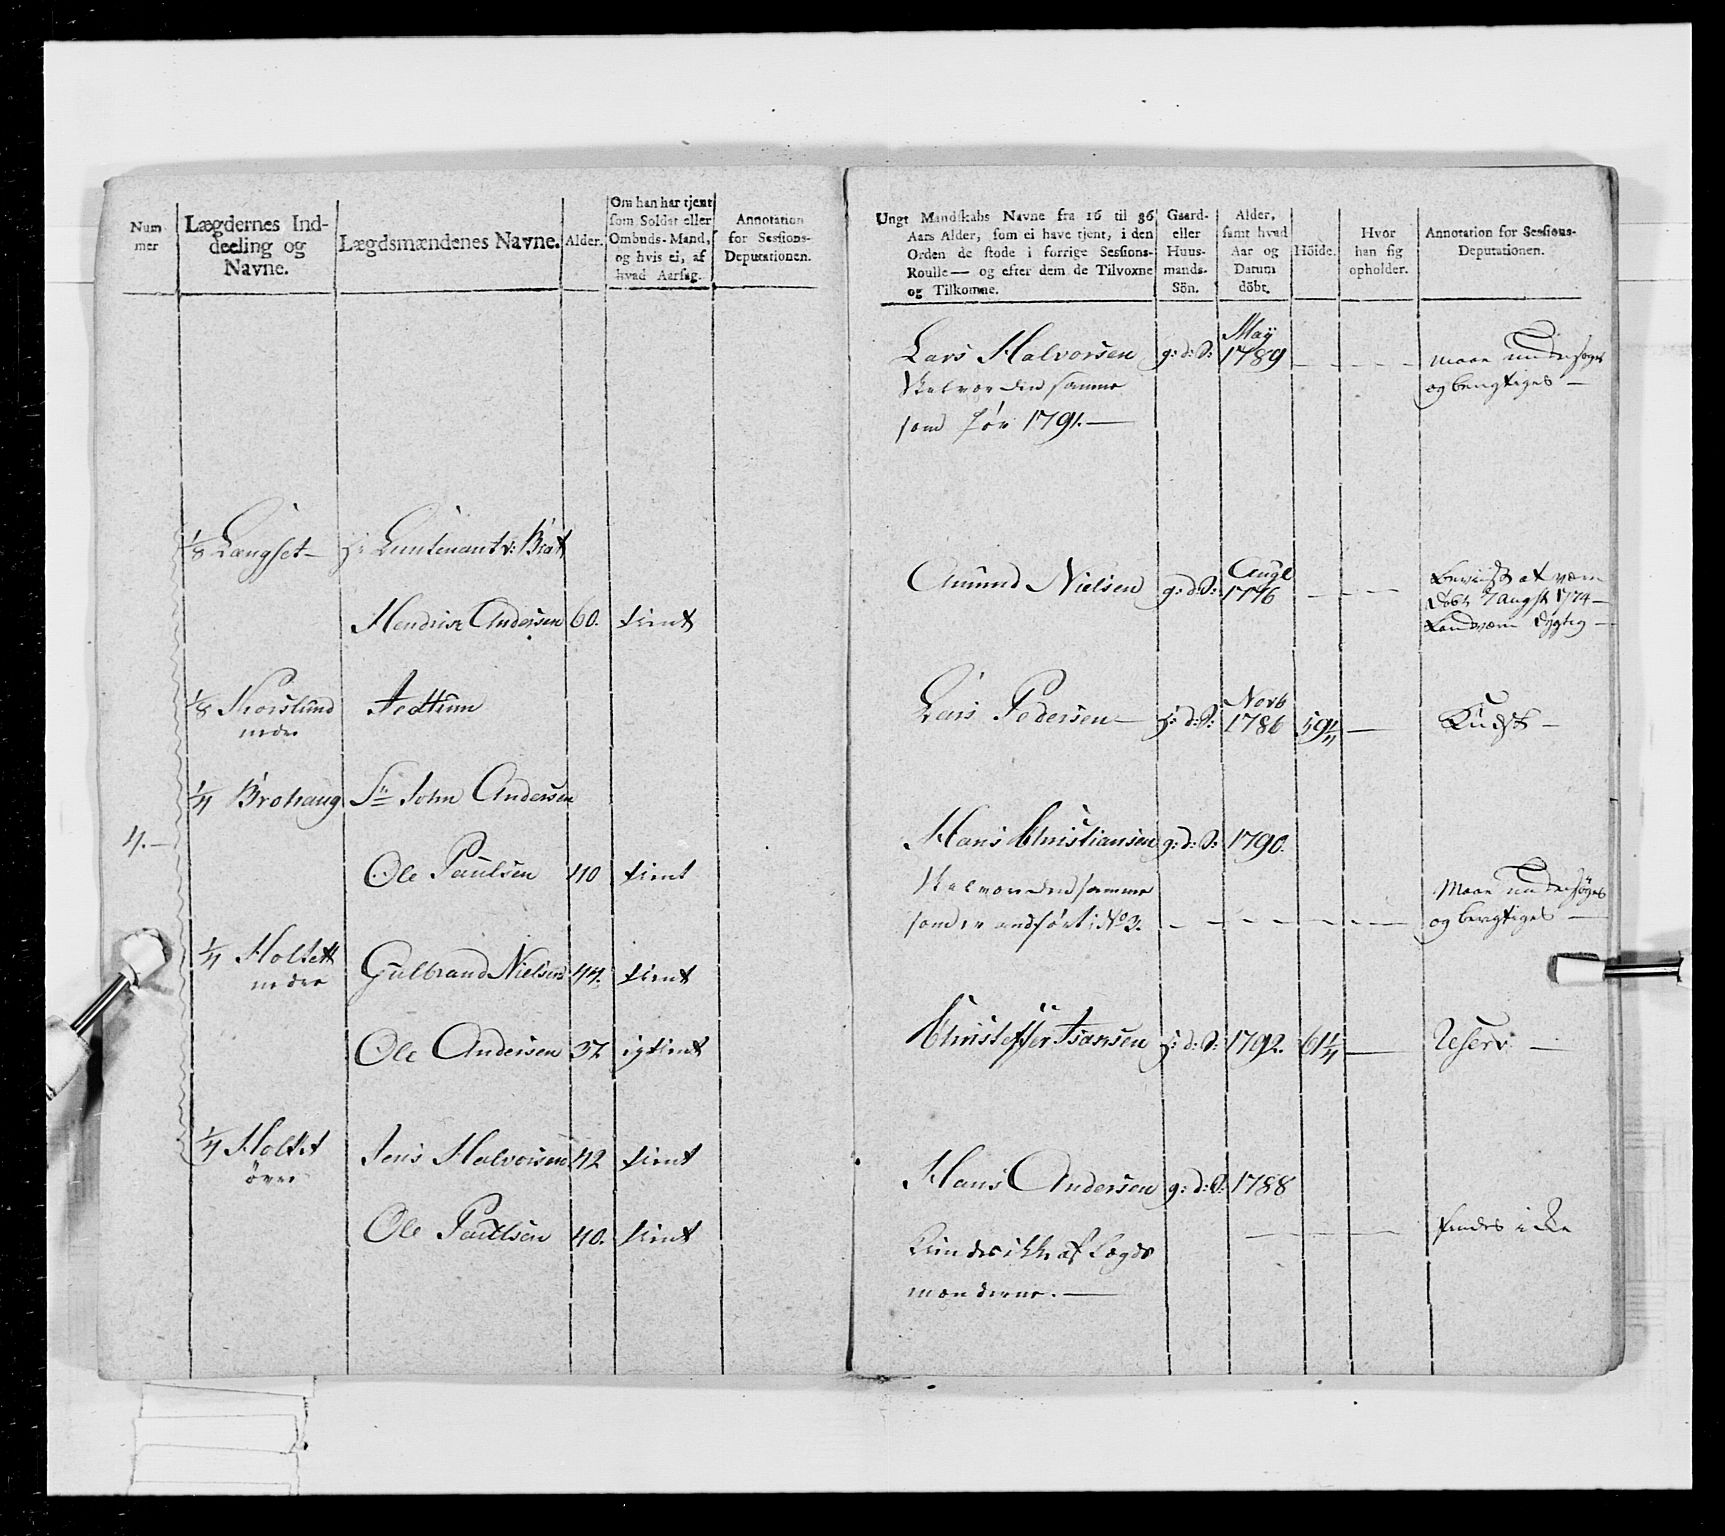 Num
mer
Lægdernes Ind-
deeling og
Navne.
Lægdsmændenes Navne.
Alder.
Om han har tjent
som Soldat eller
Ombuds-Mand,
og hvis ei, af
hvad Aarsag.
Annotation
for Sessions-
Deputationen.
1/8 Langset — Hr Leutenant v: Brat
Hendrick Andersen 60. tient
1/8 Thorslund
nedre
1/4 Brohaug Sr John Andersen
4. —
Ole Paulsen 40 tient
1/4 Holsett
nedre
Gulbrand Nielsen 44. tient
Ole Andersen 37. ig tient
1/4 Holset
övre
Jens Halvorsen 42 tient
Ole Paulsen 40. tient
Ungt Mandskabs Navne fra 16 til 36
Aars Alder, som ei have tjent, i den
Orden de stode i forrige Sessions-
Roulle — og efter dem de Tilvoxne
og Tilkomne.
Gaard-
eller
Huus-
mands-
Sön.
Alder,
samt hvad
Aar og
Datum
döbt.
Höide.
Hvor
han sig
opholder.
Annotation for Sessions-
Deputationen.
Lars Halvorsen g: d: S: May 1789
Maae undersøges
og berigtiges —
Skal være den samme
som før 1791. —
Amund Nielsen g: d: S: Augl 1776
Beviist at være
døbt 7 Augst 1774 —
Landværn dygtig —
Lars Pedersen — h: d: S: Novb 1786 59 1/4 —
Hans Christiansen g: d: S: 1790.
Skal være den samme
som er andført i No 3.
Maae undersøges
og berigtiges —
Christoffer Hansen h: d: S: 1792. 61 1/4 — Reserv —
Hans Andersen g: d: S: 1788
Kiendes ikke af Lægds
mænderne. —
findes ikke